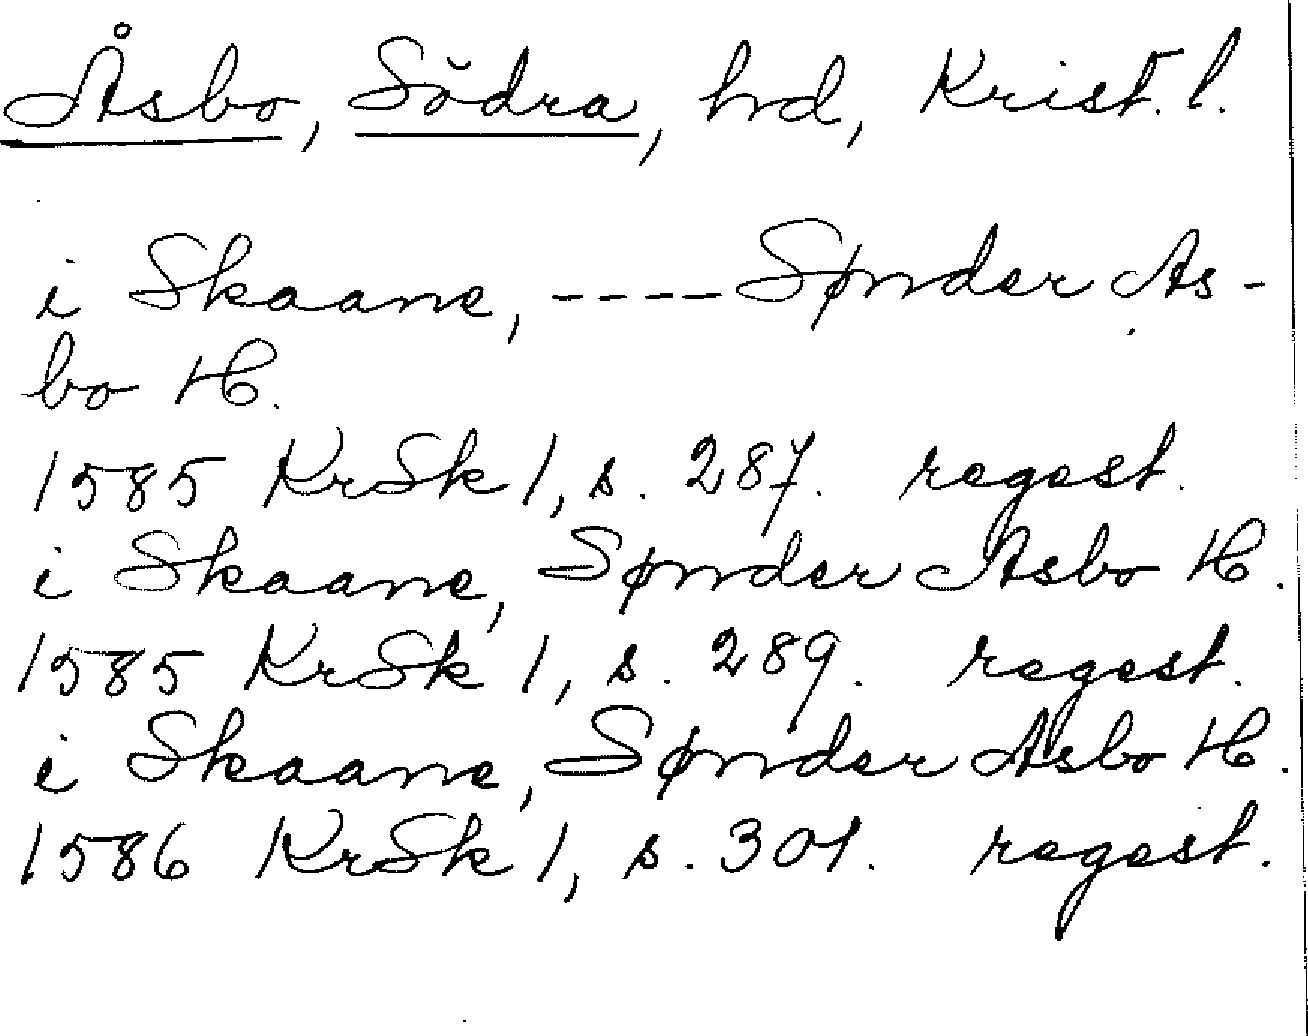 Åsbo, Södra, hd, Krist. l.
i Skaane, ---- Sønder As-
bo H.
1585 KrSk 1, s. 287. regest.
i Skaane, Sønder Asbo H.
1585 KrSk 1, s. 289. regest.
i Skaane, Sønder Asbo H.
1586 KrSk 1, s. 301. regest.